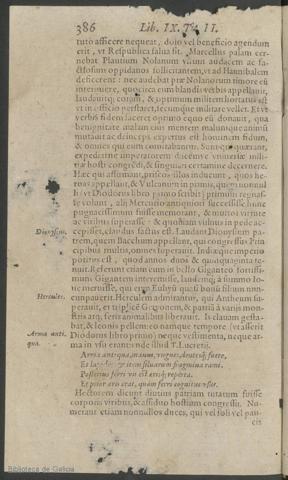 386 Lib. IX. Tit. II.
tuto afficere nequeat, dolo vel beneficio agendum
erit, vt Respublica salua sit. Marcellus palam cer-
nebat Plautium Nolanum virum audacem ac fa-
ctiosum oppidanos sollicitantem, vt ad Hannibalem
deficerent: nec audebat præ Nolanorum timore eũ
interimere, quocirca eum blandis verbis appellauit,
laudauitq; coram, & vt militem hortatus est
vt in officio perstaret, secumque militare vellet. Et vt
verbis fidem faceret optimo equo eũ donauit, qua
benignitate
mutauit ac deinceps expertus est hominem fidum,
& omnes qui eum comitabantur. Sunt qui quærant,
expediatne imperatorem dicere e vniuersæ mili-
tiæ hosti congredi, & singulari certamine decernere.
Hæc qui assumant, priscos illos inducunt, quos he-
roas appellant, & Vulcanum in primis, quem nonnul-
li (vt Diodorus libro primo scribit) primum regnas-
se volunt, alij Mercurio antiquiori successisse hunc
pugnacissimum fuisse memorant, & multos virtute
ac viribus superasse: & quoniam vulnus in pede ac-
cepisset, claudus factus est. Laudant Dionysium pa-
Dionysius.
trem, quem Bacchum appellant, qui congressus Prin
cipibus multis, omnes superauit. Indiæque imperio
potitus est, quod annos duos & quinquaginta te-
nuit. Referunt etiam eum in bello Giganteo fortissi-
mum Gigantem interemisse, laudemq; à summo Io-
ue meruisse, qui eum Euhyũ quasi bonũ filium nun-
Hercules.
cunpauerit. Herculem admirantur, qui Antheum su-
perauit, et triplicẽ Geryonem, & patriã à varijs mons-
tris atq; feris animalibus liberauit. Is clauam gesta-
bat, & leonis pellem: eo namque tempore (vt asserit
Arma anti-
qua.
Diodorus libro primo) neque vestimenta, neque ar-
ma in vsu erant: vnde illud T. Lucretij.
Arma antiqua, manus, vngues, dentesq́; fuere,
Et lapides, & item siluarum fragmina rami.
Posterius ferri vis est ærisq; reperta.
Et prior æris erat, quàm ferri cognitus vsus.
Hectorem dicunt diutius patriam tutatum fuisse
corporis viribus, & assiduo hostium congressu. Nu-
merant etiam nonnullos duces, qui vel soli vel pau-
cis
Biblioteca de Galicia